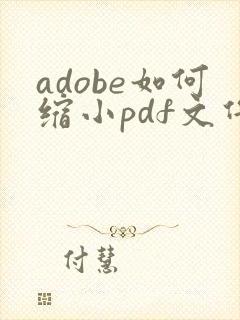 adobe如何
缩小pdf文件
付慧